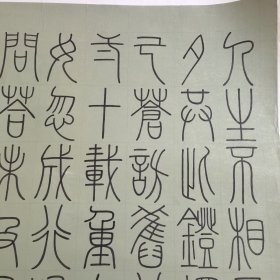 人生不相
夕共此鐙
已蒼訪舊
二十載重
女忽成行
問答未及